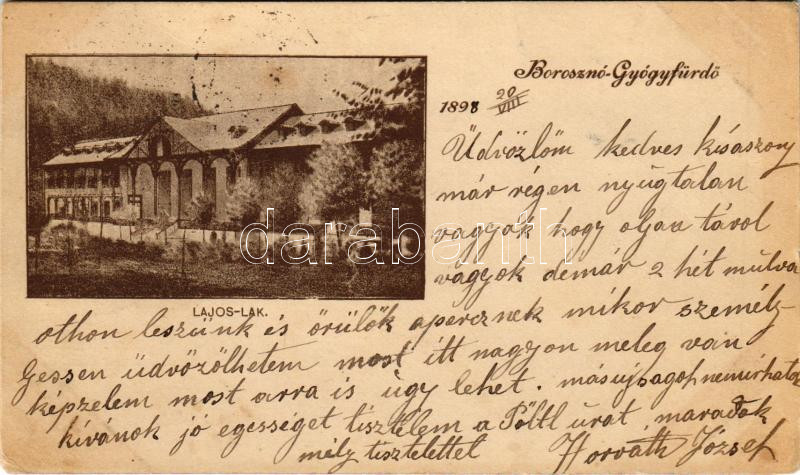 Borosznó-Gyógyfürdő
1898 20/VIII
Üdvözlöm kedves kisászony
már régen nyugtalan
vagyok hogy oljan távol
vagyok demár 2 hét mulva
LAJOS-LAK.
othon leszünk és örülök apercznek mikor személy-
Gessen üdvözölhetem most itt nagyon meleg van
képzelem most arra is úgy lehet. másujságot nemirhatok
kívánok jó egességet tisztelem a Pöltl úrat, maradok
mély tisztelettel Horváth József
darabanth.com